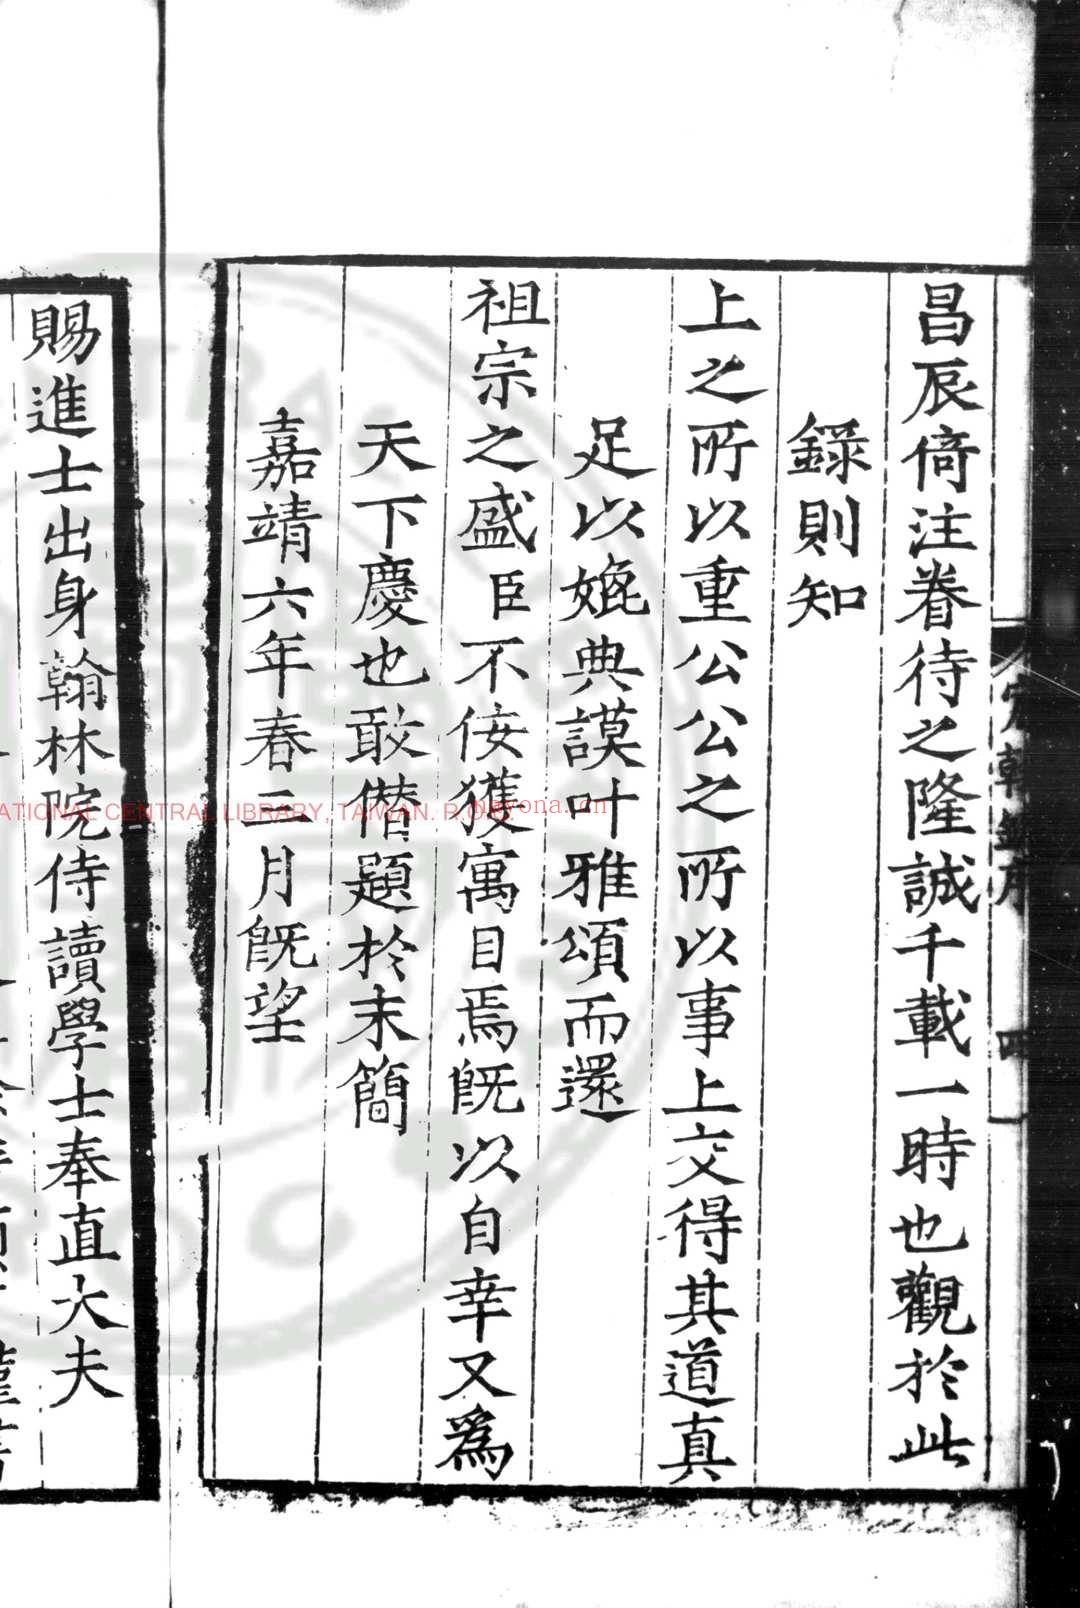 昌辰倚注眷待之隆誠千載一時也觀於此
錄則知
上之所以重公公之所以事上交得其道真
足以媲典謨叶雅頌而還
祖宗之盛臣不佞獲寓目焉既以自幸又爲
天下慶也敢僣題於末簡
嘉靖六年春二月旣望
賜進士出身翰林院侍讀學士奉直大夫
NATIONAL CENTRAL LIBRARY, TAIWAN. R.O.C
nayona.cn